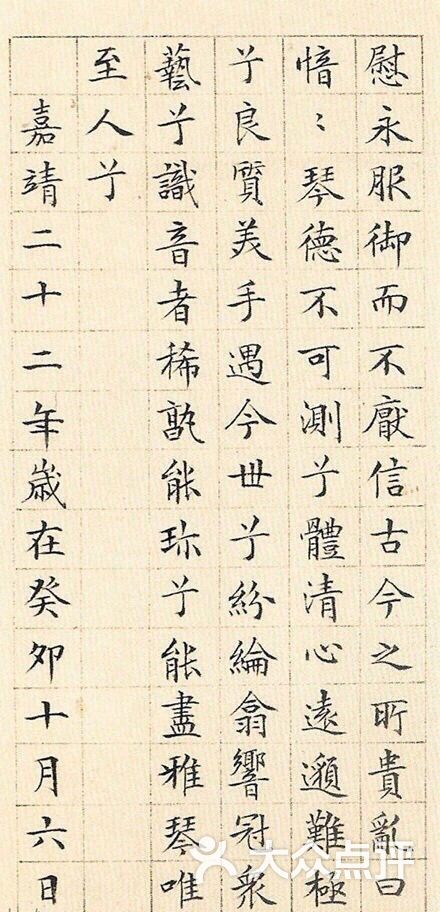 慰永服御而不厭信古今之所貴亂曰
愔〻琴德不可測兮體清心遠邈難極
兮良質美手遇今世兮紛綸翕響冠衆
藝兮識音者稀孰能珎兮能盡雅琴唯
至人兮
嘉靖二十二年歲在癸卯十月六日
大众点评